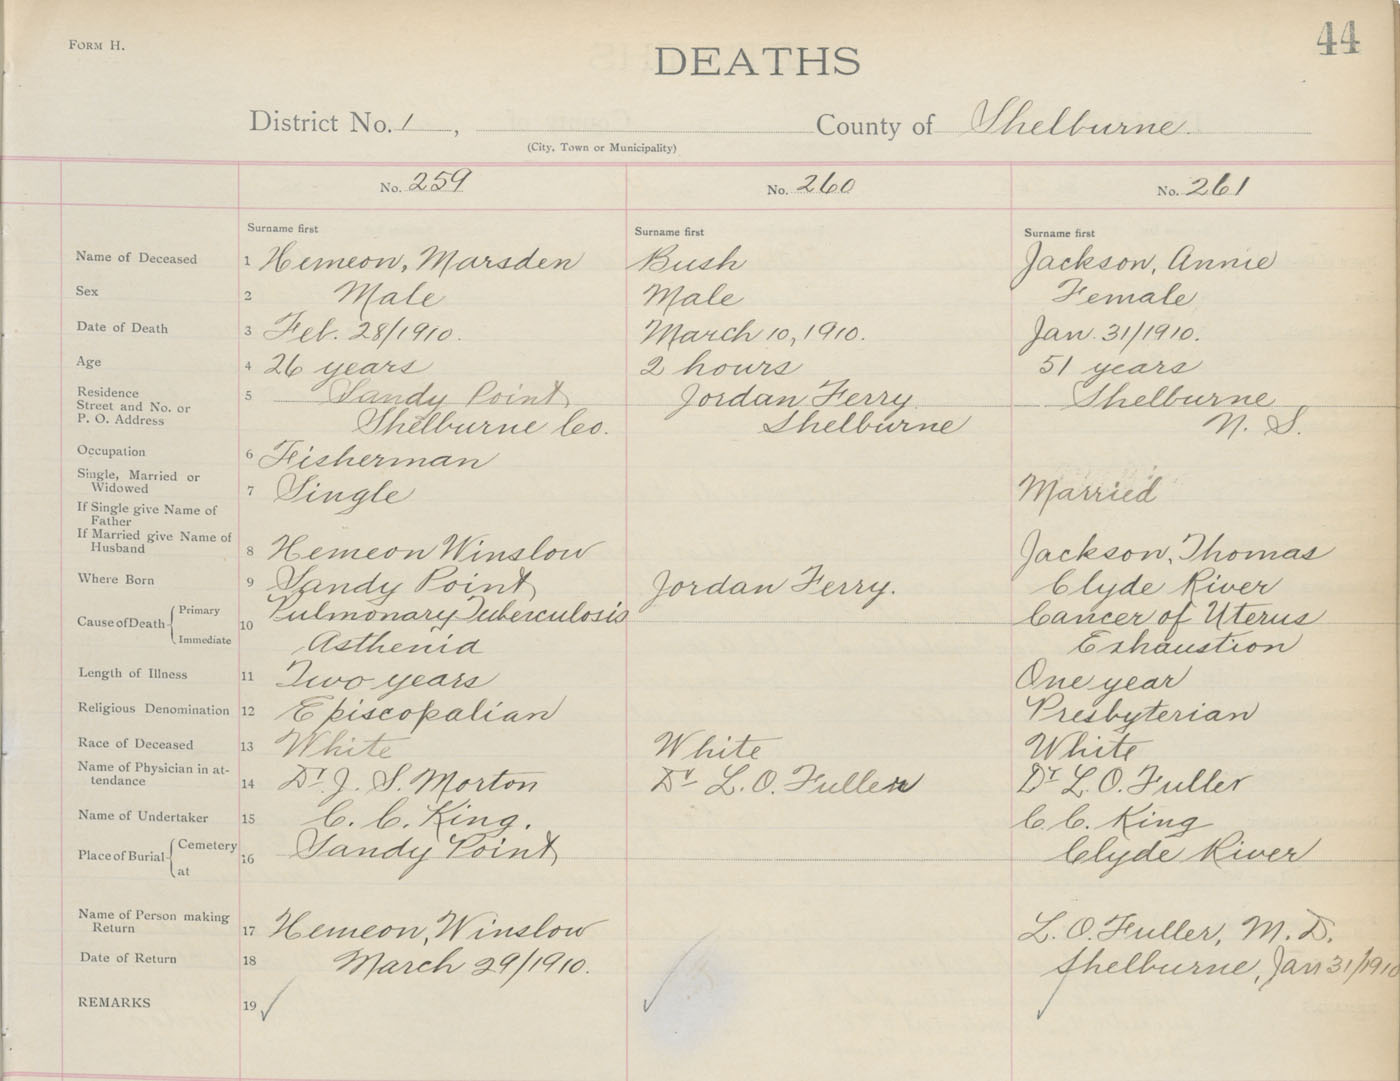 FORM H.
44
DEATHS
District No. 1, County of Shelburne.
(City, Town or Municipality)
No. 259 No. 260 No. 261
Surname first Surname first Surname first
Name of Deceased 1 Hemeon, Marsden Bush Jackson, Annie
Sex 2 Male Male Female
Date of Death 3 Feb. 28/1910. March 10, 1910. Jan. 31/1910.
Age 4 26 years 2 hours 51 years
Residence
Street and No. or 5 Sandy Point Jordan Ferry Shelburne
P. O. Address Shelburne Co. Shelburne N. S.
Occupation 6 Fisherman
Single, Married or
Widowed 7 Single Married
If Single give Name of
Father
If Married give Name of
Husband 8 Hemeon Winslow Jackson, Thomas
Where Born 9 Sandy Point Jordan Ferry. Clyde River
Cause of Death Primary 10 Pulmonary Tuberculosis Cancer of Uterus
Immediate Asthenia Exhaustion
Length of Illness 11 Two years One year
Religious Denomination 12 Episcopalian Presbyterian
Race of Deceased 13 White White White
Name of Physician in at-
tendance 14 Dr. J. S. Morton Dr L. O. Fuller Dr. L. O. Fuller
Name of Undertaker 15 C. C. King. C C. King
Place of Burial Cemetery 16 Sandy Point Clyde River
at
Name of Person making
Return 17 Hemeon, Winslow L. O. Fuller, M. D.
Date of Return 18 March 29/1910. Shelburne, Jan 31/1910
REMARKS 19 ✓ ✓ ✓